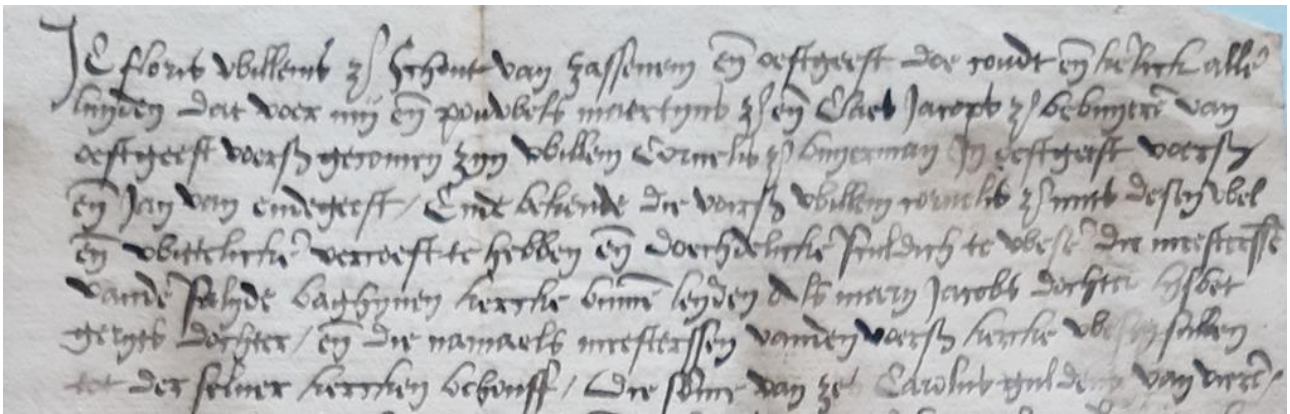 Ic floris willems zn Schout van zassenem en oestgeest doe condt en kenlick alle
luyden dat voer mij en pouwels maertijns zn en Claes Jacops zn gebueren van
oestgeest voersz gecomen zijn willem Cornelis zn buyerman In oestgeest voersz
en Jan van endegeest / Ende bekende die voersz willem cornelis zn mits desen wel
en wittelicke vercoft te hebben en doechdelicke sculdich te wesen die meestersse
vande falyde baghynen kercke binnen leyden als mery Jacobs dochter lysbet
gerijts dochter / en die namaels meesterssen vanden voersz kercke wesen sullen
tot der selver kercken behouff / die somme van Carolus gulden van